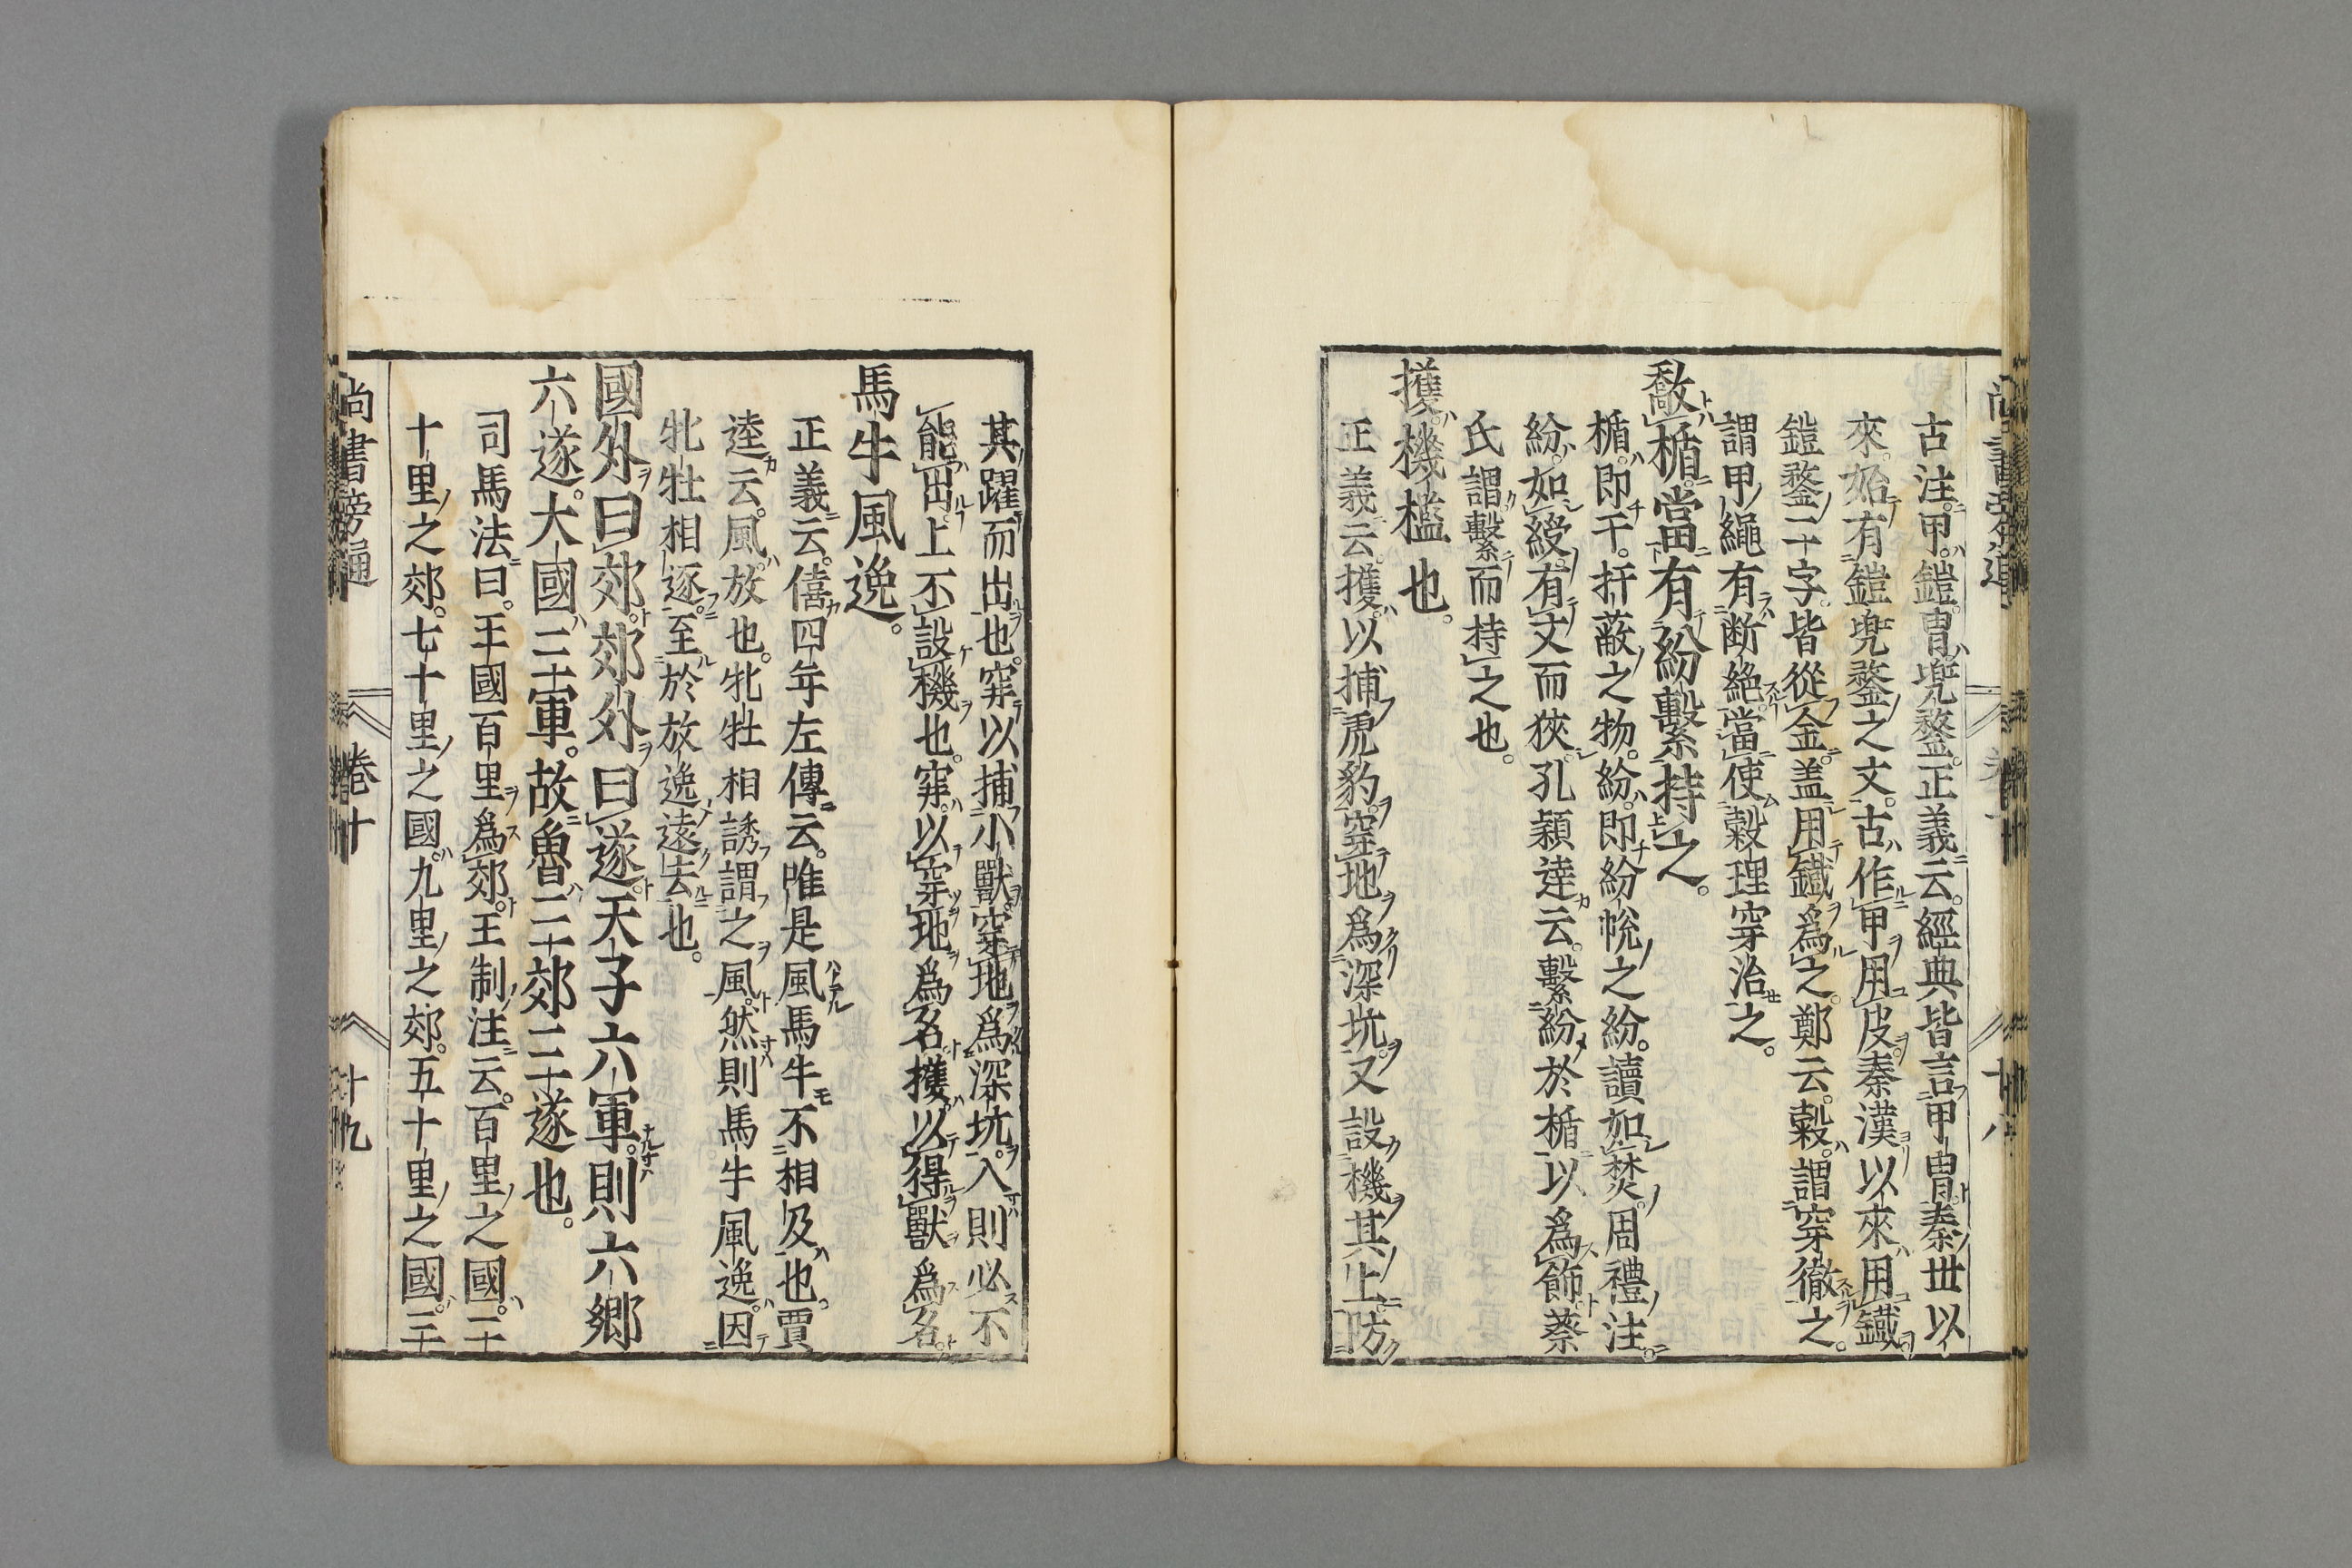 古注。甲。鎧。冑。兜鍪。正義云。經典皆言甲冑。秦世以
來。始有鎧兜鍪之文。古作甲用皮。秦漢以來用鐵。
鎧鍪二字。皆從金。蓋用鐵爲之。鄭云。敹。謂穿徹之。
謂甲繩有斷絕。當使敹理穿治之。
敿楯。當有紛繫持之。
楯。即干。扞蔽之物。紛。即紛帨之紛。讀如焚。周禮注。
紛。如綬。有文而狹。孔穎達云。繫紛於楯以爲飾。蔡
氏謂繫而持之也。
擭。機檻也。
正義云。擭。以捕虎豹。穿地爲深坑。又設機其上。防
其躍而出也。穽以捕小獸。穿地爲深坑。入則必不
能出。上不設機也。穽。以穿地爲名。擭以得獸爲名。
馬牛風逸。
正義云。僖四年左傳云。唯是風馬牛不相及也。賈
逵云。風。放也。牝牡相誘謂之風。然則馬牛風逸。因
牝牡相逐。至於放逸遠去也。
國外曰郊。郊外曰遂。天子六軍。則六鄉
六遂。大國三軍。故魯三郊三遂也。
司馬法曰。王國百里爲郊。王制注云。百里之國。二
十里之郊。七十里之國。九里之郊。五十里之國。三
尚書旁通 卷十 十九